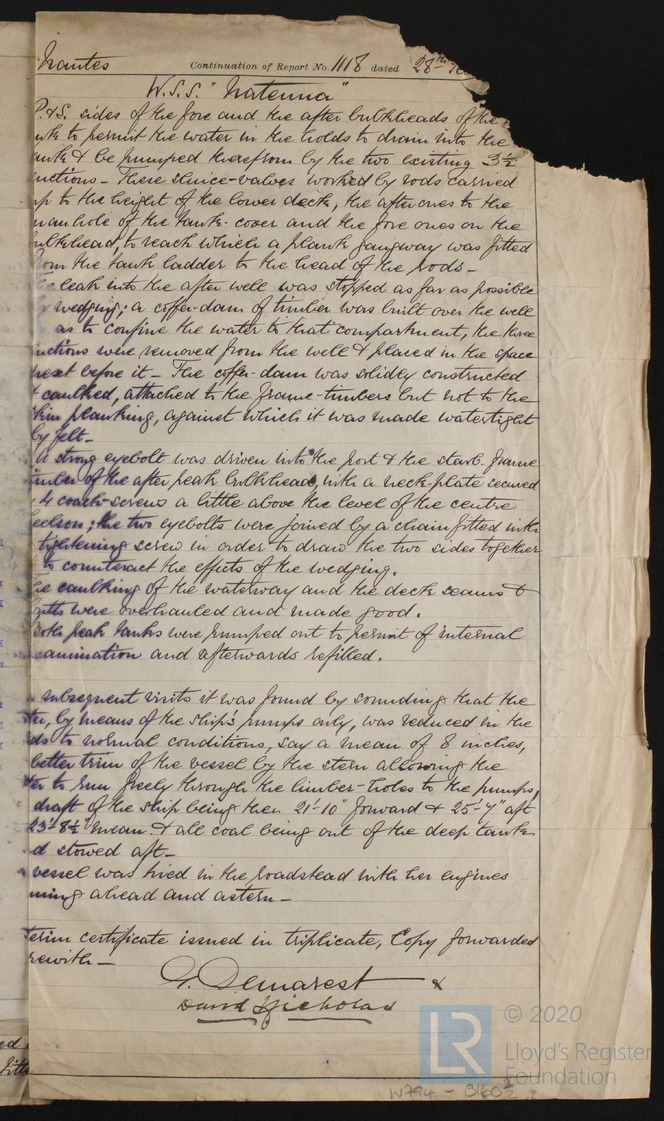 Nantes Continuation of Report No. 1118 dated 28th
W.S.S. "Natenna"
P. & S. sides of the fore and the after bulkheads of the
to permit the water in the holds to drain into the
& be pumped therefrom by the two existing 3½
uctions - These sluice-valves worked by rods carried
up to the height of the lower deck, the after ones to the
manhole of the tank-cover and the fore ones on the
ulkhead, to reach which a plank gangway was fitted
from the tank ladder to the head of the rods -
leak into the after well was stopped as far as possible
wedging; a coffer-dam of timber was built over the well
as to confine the water to that compartment, the three
uctions were removed from the well & placed in the space
next before it - The coffer-dam was solidly constructed
& caulked, attached to the frame-timbers but not to the
skin planking, against which it was made watertight
by felt -
A strong eyebolt was driven into the port & the starb. frame
imber of the after peak bulkhead, with a neck-plate secured
4 coach-screws a little above the level of the centre
eelson; the two eyebolts were joined by a chain fitted with
tightening screw in order to draw the two sides together
to counteract the effects of the wedging.
he caulking of the waterway and the deck seams &
butts were overhauled and made good.
Both peak tanks were pumped out to permit of internal
xamination and afterwards refilled.
subsequent visits it was found by sounding that the
ter, by means of the ship's pumps only, was reduced in the
ds to normal conditions, say a mean of 8 inches,
better trim of the vessel by the stern allowing the
ter to run freely through the limber-holes to the pumps,
draft of the ship being then 21'-10" forward & 25'-7" aft
23'-8½" mean & all coal being out of the deep tank
d stowed aft -
vessel was tried in the roadstead with her engines
nning ahead and astern -
terim certificate issued in triplicate, Copy forwarded
rewith -
G. Demarest &
David Nicholas
LR © 2020
Lloyd's Register
Foundation
W794 - 0160 2